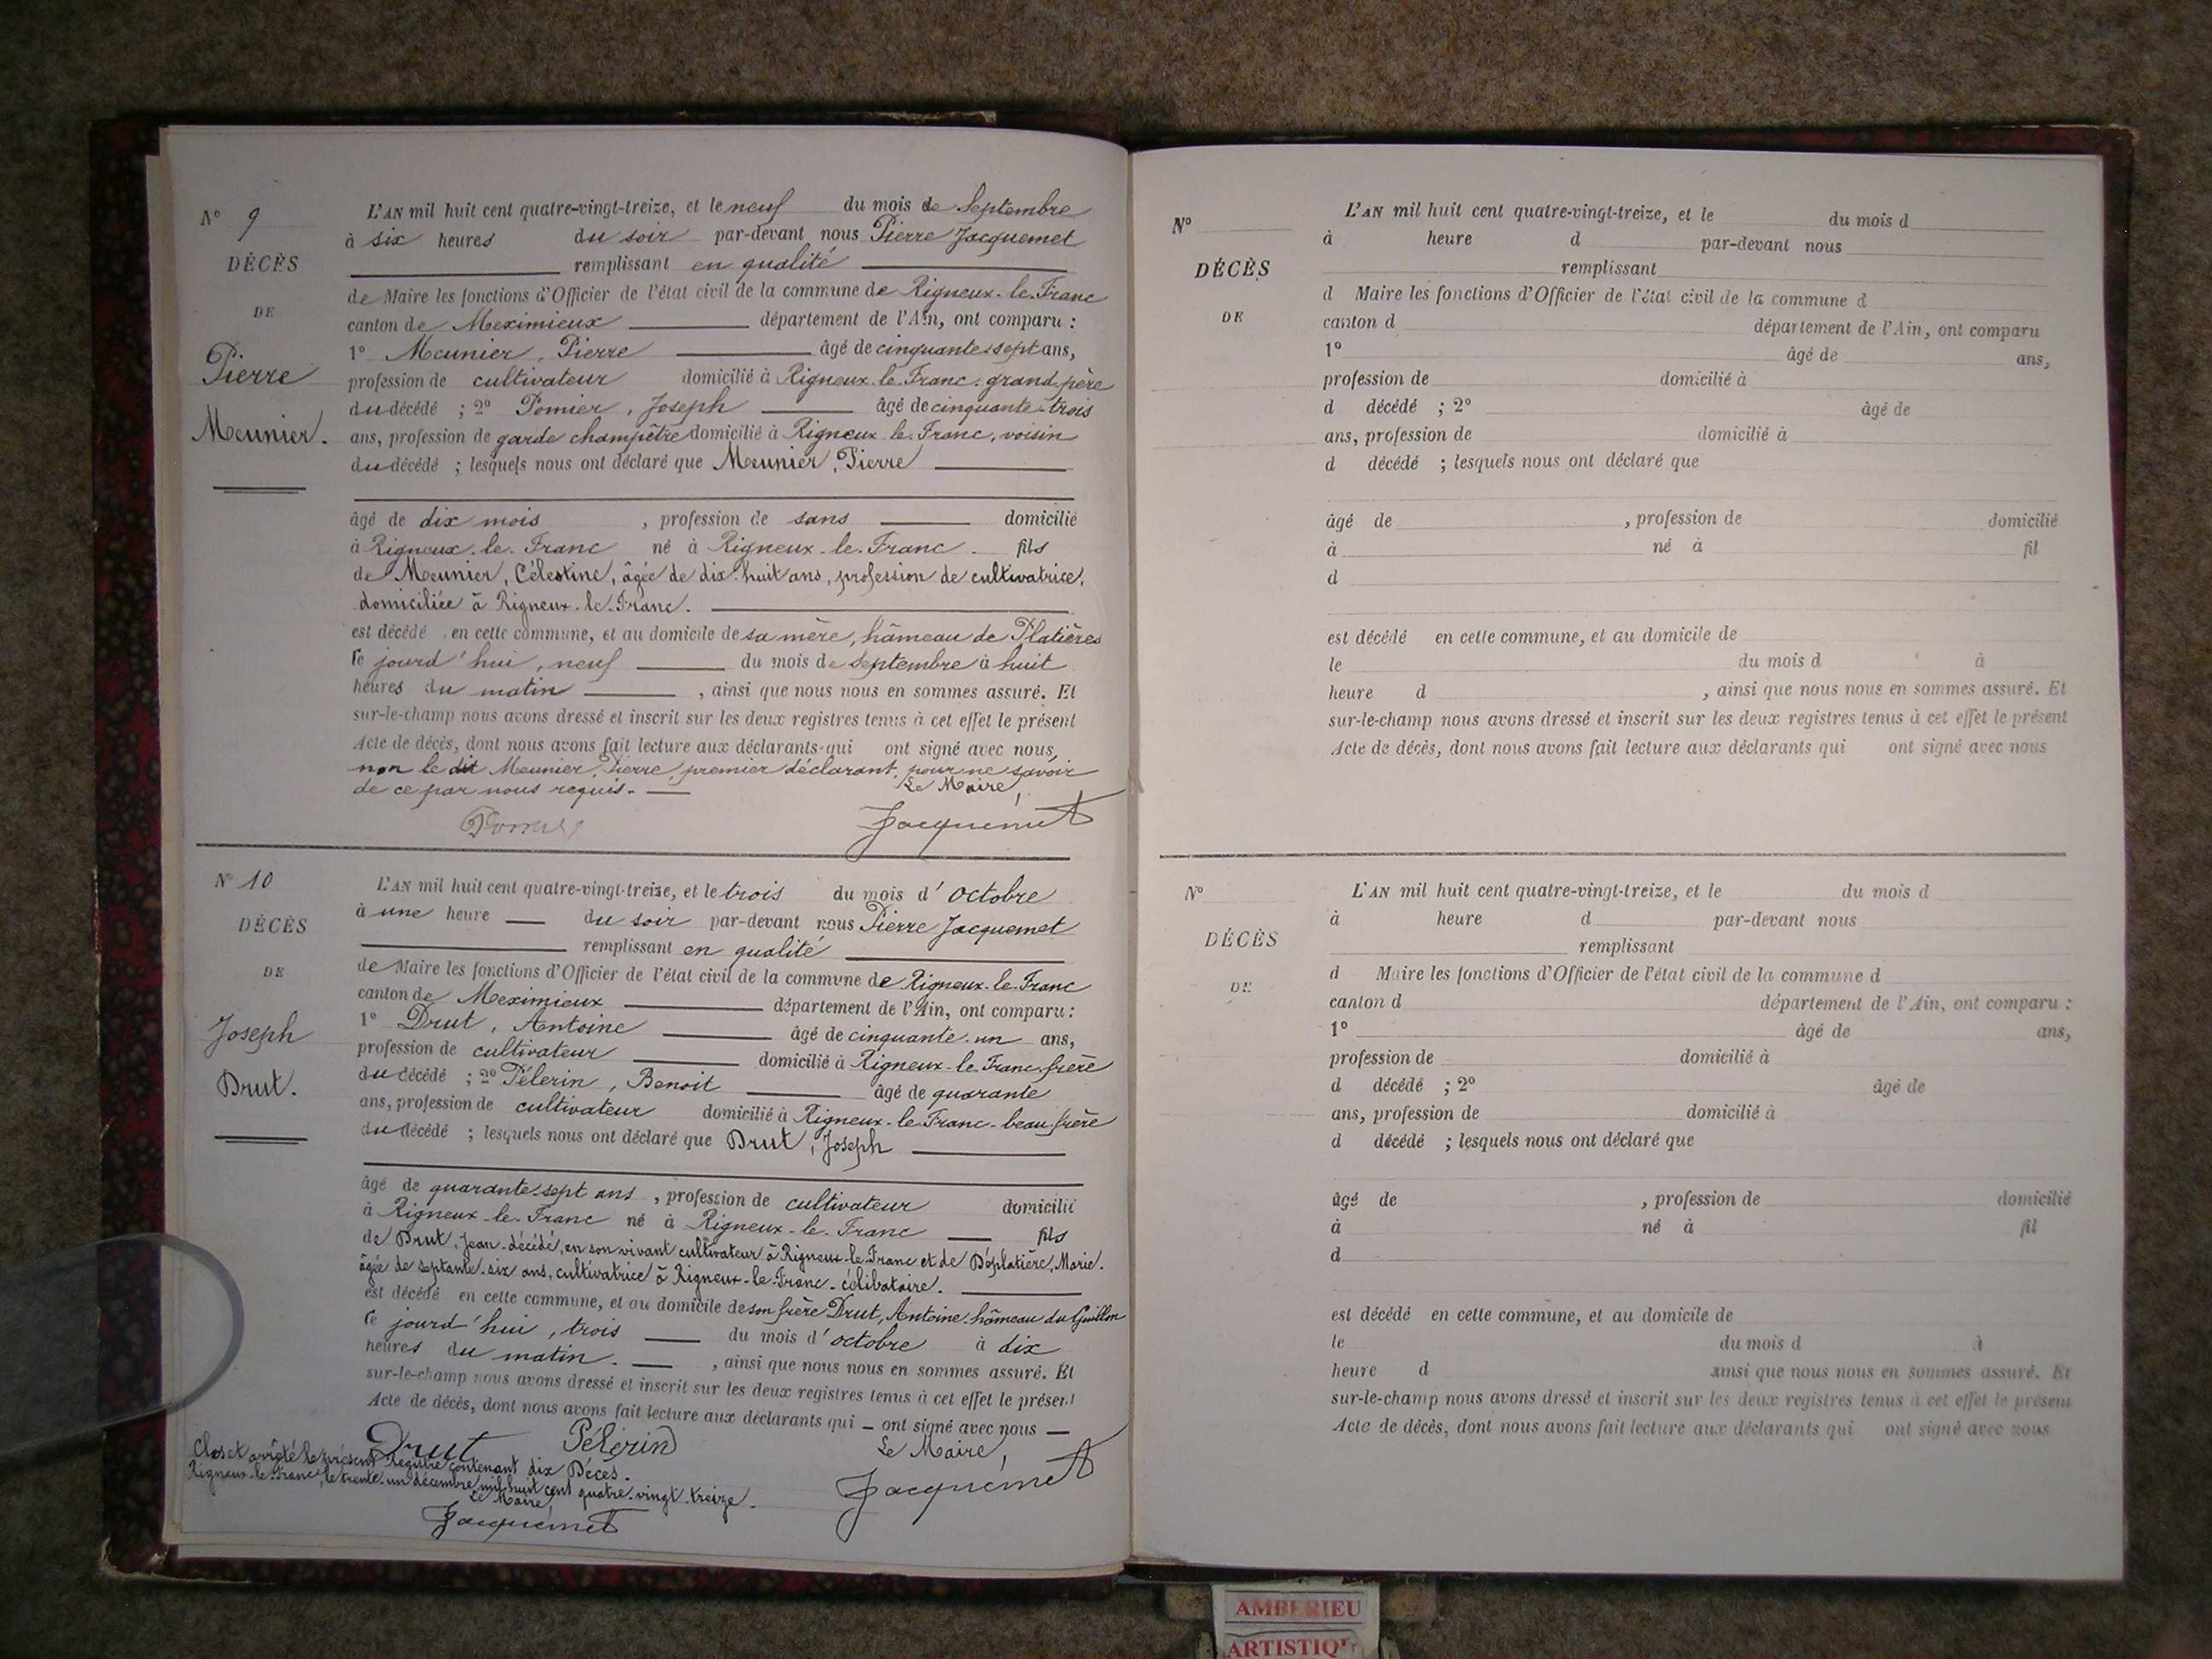 N° 9
DÉCÈS
DE
Pierre
Meunier.
L'AN mil huit cent quatre-vingt-treize, et le neuf du mois de Septembre
à six heures du soir par-devant nous Pierre Jacquemet
remplissant en qualité
de Maire les fonctions d'Officier de l'état civil de la commune de Rigneux-le-Franc
canton de Meximieux département de l'Ain, ont comparu :
1° Meunier, Pierre âgé de cinquante-sept ans,
profession de cultivateur domicilié à Rigneux-le-Franc, grand-père
du décédé ; 2° Pomier, Joseph âgé de cinquante-trois
ans, profession de garde champêtre domicilié à Rigneux-le-Franc, voisin
du décédé ; lesquels nous ont déclaré que Meunier, Pierre
âgé de dix mois , profession de sans domicilié
à Rigneux-le-Franc né à Rigneux-le-Franc. fils
de Meunier, Célestine, âgée de dix-huit ans, profession de cultivatrice,
domiciliée à Rigneux-le-Franc.
est décédé en cette commune, et au domicile de sa mère, hâmeau de Platières
le jourd'hui, neuf du mois de Septembre à huit
heures du matin , ainsi que nous nous en sommes assuré. Et
sur-le-champ nous avons dressé et inscrit sur les deux registres tenus à cet effet le présent
Acte de décès, dont nous avons fait lecture aux déclarants qui ont signé avec nous,
non le dit Meunier, Pierre, premier déclarant, pour ne savoir
de ce par nous requis. Le Maire,
Jacquemet
N° 10
DÉCÈS
DE
Joseph
Drut.
L'AN mil huit cent quatre-vingt-treize, et le trois du mois d'octobre
à une heure du soir par-devant nous Pierre Jacquemet
remplissant en qualité
de Maire les fonctions d'Officier de l'état civil de la commune de Rigneux-le-Franc
canton de Meximieux département de l'Ain, ont comparu :
1° Drut, Antoine âgé de cinquante-un ans,
profession de cultivateur domicilié à Rigneux-le-Franc frère
du décédé ; 2° Pélerin, Benoit âgé de quarante
ans, profession de cultivateur domicilié à Rigneux-le-Franc-beau-frère
du décédé ; lesquels nous ont déclaré que Drut, Joseph
âgé de quarante-sept ans , profession de cultivateur domicilié
à Rigneux-le-Franc né à Rigneux-le-Franc fils
de Drut, Jean-décédé, en son vivant cultivateur à Rigneux-le-Franc et de Déplatière, Marie.
âgée de septante-six ans, cultivatrice à Rigneux-le-Franc-célibataire.
est décédé en cette commune, et au domicile de son frère Drut, Antoine-hâmeau du Guillon
le jourd'hui, trois du mois d'octobre à dix
heures du matin. , ainsi que nous nous en sommes assuré. Et
sur-le-champ nous avons dressé et inscrit sur les deux registres tenus à cet effet le présent
Acte de décès, dont nous avons fait lecture aux déclarants qui – ont signé avec nous –
Drut Pélerin Le Maire,
Jacquemet
Clos et arrêté le présent Registre contenant dix Décès.
Rigneux-le-Franc, le trente-un décembre mil huit cent quatre-vingt-treize.
Le Maire,
Jacquemet
N°
DÉCÈS
DE
L'AN mil huit cent quatre-vingt-treize, et le du mois d
à heure d par-devant nous
remplissant
d Maire les fonctions d'Officier de l'état civil de la commune d
canton d département de l'Ain, ont comparu
1° âgé de ans,
profession de domicilié à
d décédé ; 2° âgé de
ans, profession de domicilié à
d décédé ; lesquels nous ont déclaré que
âgé de , profession de domicilié
à né à fil
d
est décédé en cette commune, et au domicile de
le du mois d à
heure d , ainsi que nous nous en sommes assuré. Et
sur-le-champ nous avons dressé et inscrit sur les deux registres tenus à cet effet le présent
Acte de décès, dont nous avons fait lecture aux déclarants qui ont signé avec nous
N°
DÉCÈS
DE
L'AN mil huit cent quatre-vingt-treize, et le du mois d
à heure d par-devant nous
remplissant
d Maire les fonctions d'Officier de l'état civil de la commune d
canton d département de l'Ain, ont comparu :
1° âgé de ans,
profession de domicilié à
d décédé ; 2° âgé de
ans, profession de domicilié à
d décédé ; lesquels nous ont déclaré que
âgé de , profession de domicilié
à né à fil
d
est décédé en cette commune, et au domicile de
le du mois d à
heure d ainsi que nous nous en sommes assuré. Et
sur-le-champ nous avons dressé et inscrit sur les deux registres tenus à cet effet le présent
Acte de décès, dont nous avons fait lecture aux déclarants qui ont signé avec nous
AMBERIEU
ARTISTIQU